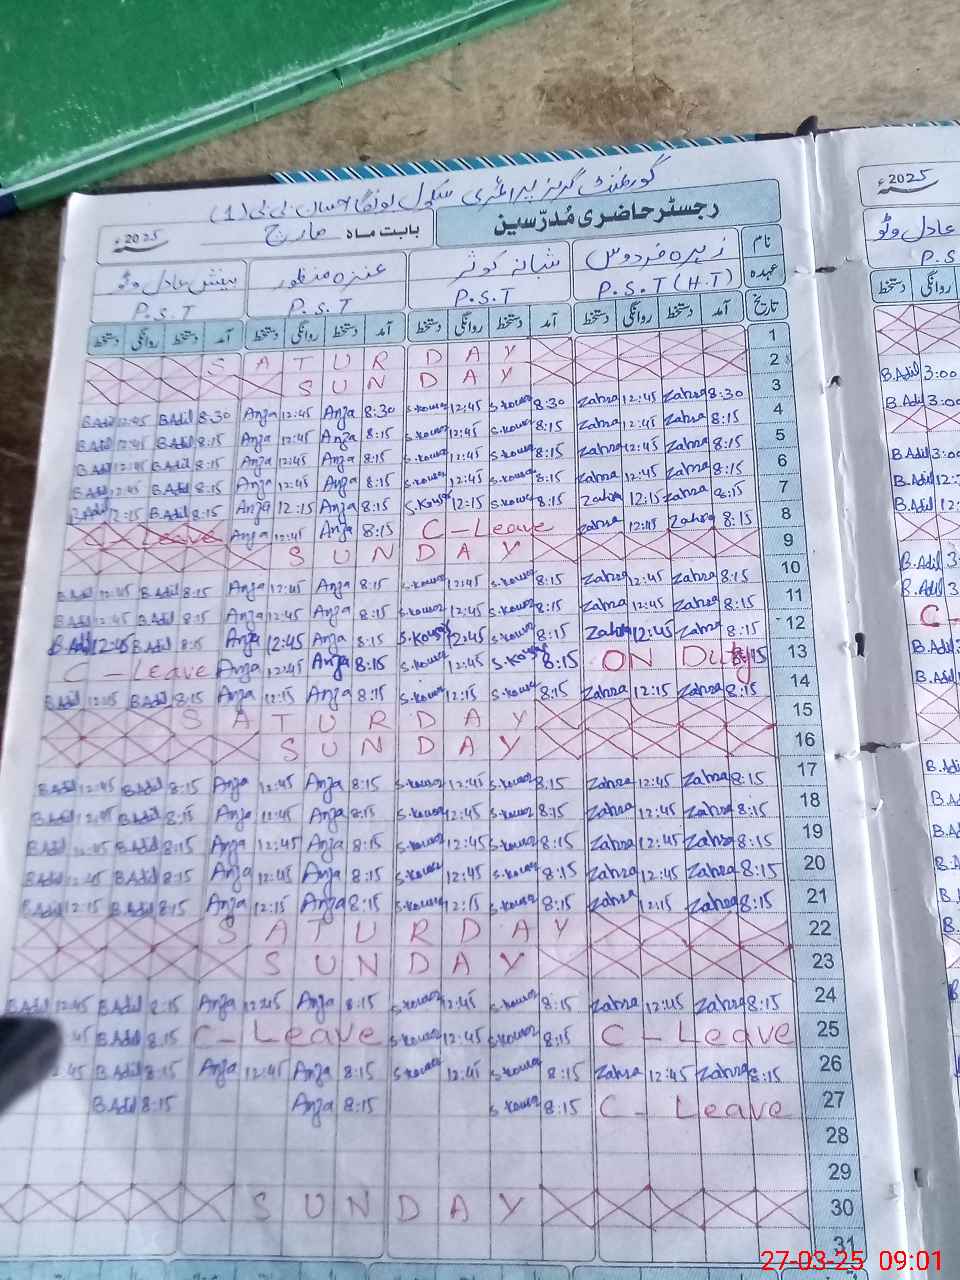 گورنمنٹ گرلز پرائمری سکول
رجسٹر حاضری مُدرّسین بابت ماہ مارچ 2025ء
نام زہرہ فردوس شبانہ کوثر عنزہ منظور بینش عادل وٹو
عہدہ P.S.T (H.T) P.S.T P.S.T P.S.T
تاریخ آمد دستخط روانگی دستخط آمد دستخط روانگی دستخط آمد دستخط روانگی دستخط آمد دستخط روانگی دستخط
S A T U R D A Y 1
S U N D A Y 2
B.Adil 12:45 B.Adil 8:30 Anza 12:45 Anza 8:30 S.Kousr 12:45 S.Kousr 8:30 Zahra 12:45 Zahra 8:30 3
B.Adil 12:45 B.Adil 8:15 Anza 12:45 Anza 8:15 S.Kousr 12:45 S.Kousr 8:15 Zahra 12:45 Zahra 8:15 4
B.Adil 12:45 B.Adil 8:15 Anza 12:45 Anza 8:15 S.Kousr 12:45 S.Kousr 8:15 Zahra 12:45 Zahra 8:15 5
B.Adil 12:45 B.Adil 8:15 Anza 12:45 Anza 8:15 S.Kousr 12:45 S.Kousr 8:15 Zahra 12:45 Zahra 8:15 6
B.Adil 12:15 B.Adil 8:15 Anza 12:15 Anza 8:15 S.Kousr 12:15 S.Kousr 8:15 Zahra 12:15 Zahra 8:15 7
C - Leave Anza 12:45 Anza 8:15 C - Leave Zahra 12:45 Zahra 8:15 8
S U N D A Y 9
B.Adil 12:45 B.Adil 8:15 Anza 12:45 Anza 8:15 S.Kousr 12:45 S.Kousr 8:15 Zahra 12:45 Zahra 8:15 10
B.Adil 12:45 B.Adil 8:15 Anza 12:45 Anza 8:15 S.Kousr 12:45 S.Kousr 8:15 Zahra 12:45 Zahra 8:15 11
B.Adil 12:45 B.Adil 8:15 Anza 12:45 Anza 8:15 S.Kousr 12:45 S.Kousr 8:15 Zahra 12:45 Zahra 8:15 12
C - Leave Anza 12:45 Anza 8:15 S.Kousr 12:45 S.Kousr 8:15 ON Duty 8:15 13
B.Adil 12:15 B.Adil 8:15 Anza 12:15 Anza 8:15 S.Kousr 12:15 S.Kousr 8:15 Zahra 12:15 Zahra 8:15 14
S A T U R D A Y 15
S U N D A Y 16
B.Adil 12:45 B.Adil 8:15 Anza 12:45 Anza 8:15 S.Kousr 12:45 S.Kousr 8:15 Zahra 12:45 Zahra 8:15 17
B.Adil 12:45 B.Adil 8:15 Anza 12:45 Anza 8:15 S.Kousr 12:45 S.Kousr 8:15 Zahra 12:45 Zahra 8:15 18
B.Adil 12:45 B.Adil 8:15 Anza 12:45 Anza 8:15 S.Kousr 12:45 S.Kousr 8:15 Zahra 12:45 Zahra 8:15 19
B.Adil 12:45 B.Adil 8:15 Anza 12:45 Anza 8:15 S.Kousr 12:45 S.Kousr 8:15 Zahra 12:45 Zahra 8:15 20
B.Adil 12:15 B.Adil 8:15 Anza 12:15 Anza 8:15 S.Kousr 12:15 S.Kousr 8:15 Zahra 12:15 Zahra 8:15 21
S A T U R D A Y 22
S U N D A Y 23
B.Adil 12:45 B.Adil 8:15 Anza 12:45 Anza 8:15 S.Kousr 12:45 S.Kousr 8:15 Zahra 12:45 Zahra 8:15 24
:45 B.Adil 8:15 C - Leave S.Kousr 12:45 S.Kousr 8:15 C - Leave 25
:45 B.Adil 8:15 Anza 12:45 Anza 8:15 S.Kousr 12:45 S.Kousr 8:15 Zahra 12:45 Zahra 8:15 26
B.Adil 8:15 Anza 8:15 S.Kousr 8:15 C - Leave 27
28
29
S U N D A Y 30
31
2025ء
عادل وٹو
P.S
دستخط روانگی
B.Adil 3:00
B.Adil 3:00
B.Adil 3:00
B.Adil
B.Adil 12:
B.Adil 3:
B.Adil 3:
C -
B.Adil
B.Adil
27-03-25 09:01